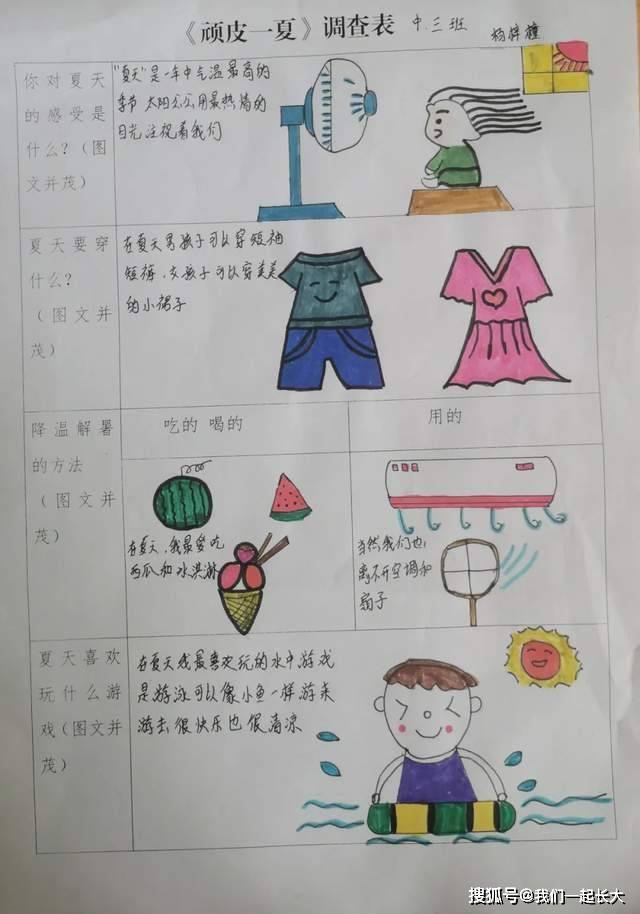 《顽皮一夏》调查表 中.三班 杨梓橦
你对夏天
的感受是
什么？（图
文并茂）
"夏天"是一年中气温最高的
季节 太阳公公用最热情的
目光注视着我们
夏天要穿
什么？
（图文并
茂）
在夏天男孩子可以穿短袖
短裤，女孩子可以穿美美
的小裙子
降温解暑
的方法
（图文并
茂）
吃的 喝的
用的
在夏天，我最爱吃
西瓜和冰淇淋
当然我们也
离不开空调和
扇子
夏天喜欢
玩什么游
戏（图文并
茂）
在夏天我最喜欢玩的水中游戏
是游泳可以像小鱼一样游来
游去很快乐也很清凉
搜狐号@我们一起长大